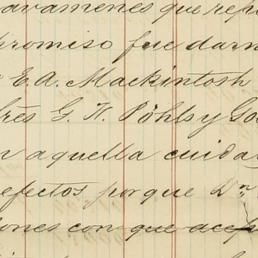 avamenes que rep
promiso fue darn
E. A. Mackintosh
res G. H. Pöhls y Go
n aquella cuida
efectos porque
iones con que acep